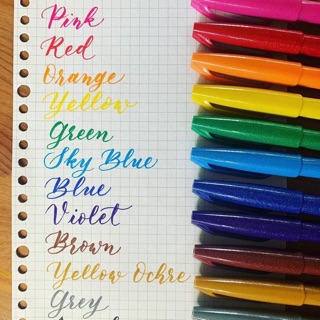 Pink
Red
Orange
Yellow
Green
Sky Blue
Blue
Violet
Brown
Yellow Ochre
Grey